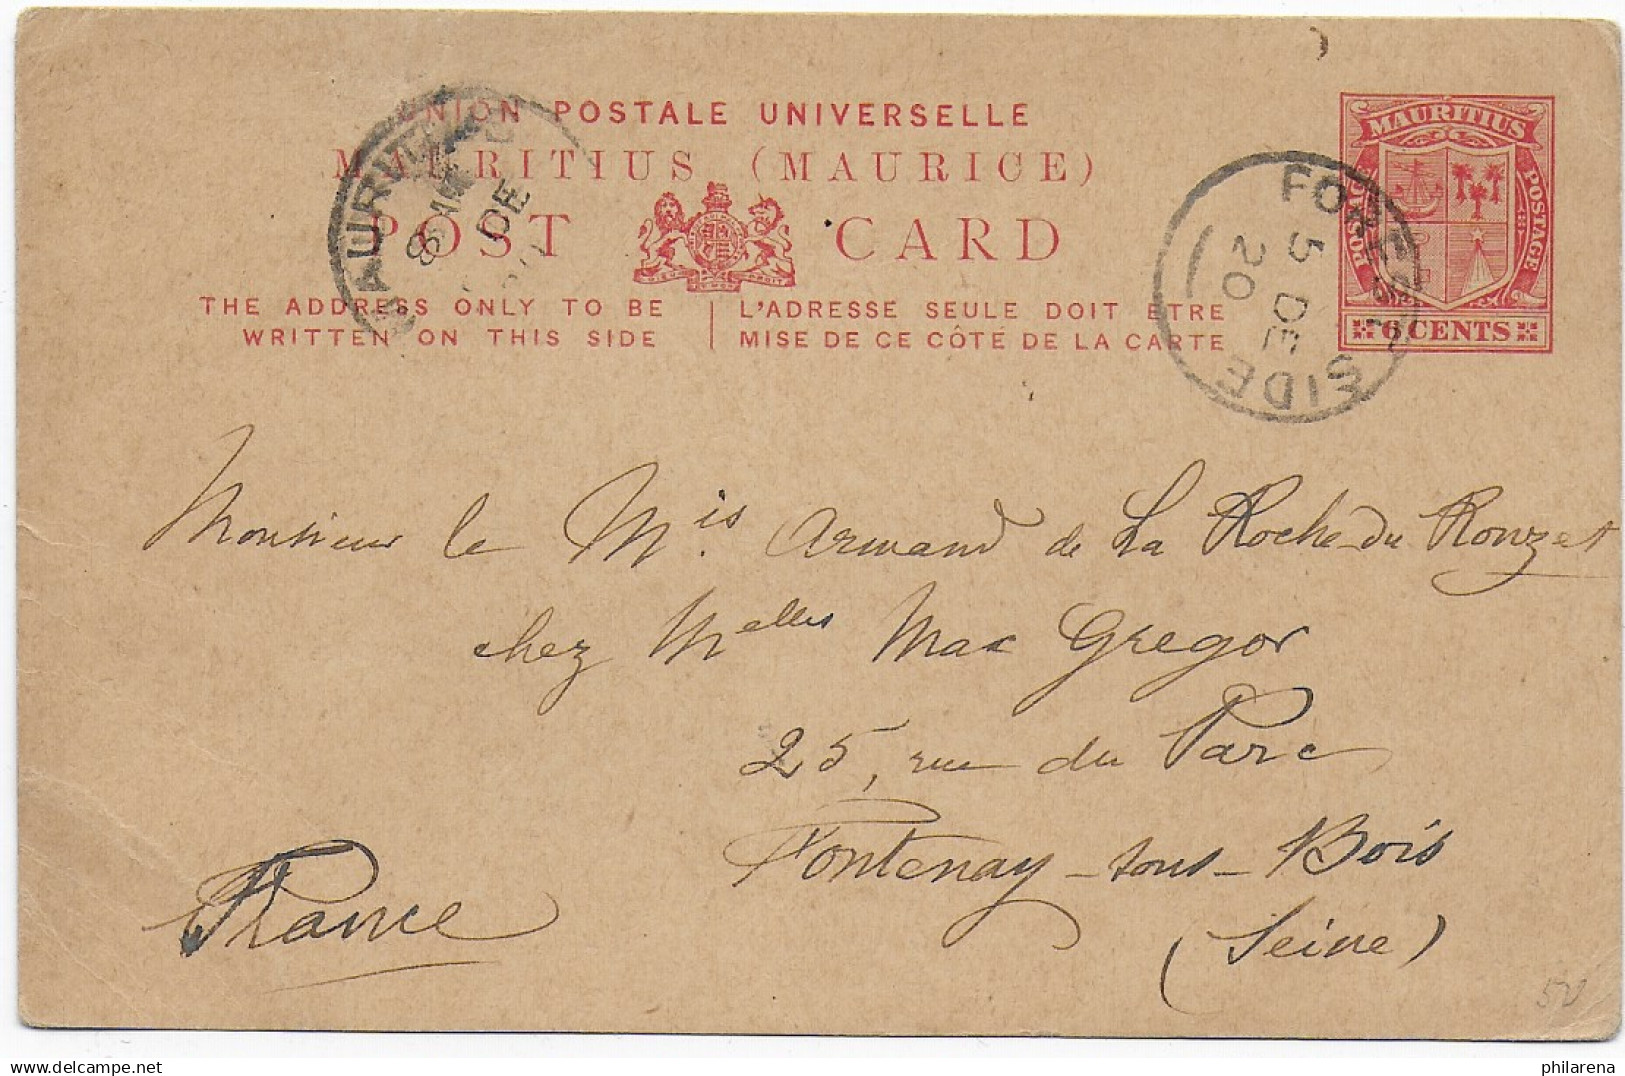 UNION POSTALE UNIVERSELLE
MAURITIUS (MAURICE)
POST CARD
THE ADDRESS ONLY TO BE
WRITTEN ON THIS SIDE
L'ADRESSE SEULE DOIT ETRE
MISE DE CE CÔTÉ DE LA CARTE
MAURITIUS
POSTAGE
6 CENTS
FOREST SIDE
5 DE
20
DE
Monsieur le Mis. Armand de La Roche-du Rouzet
chez Melles Mac Gregor
25, rue du Parc
Fontenay-sous-Bois
(Seine)
France
philarena